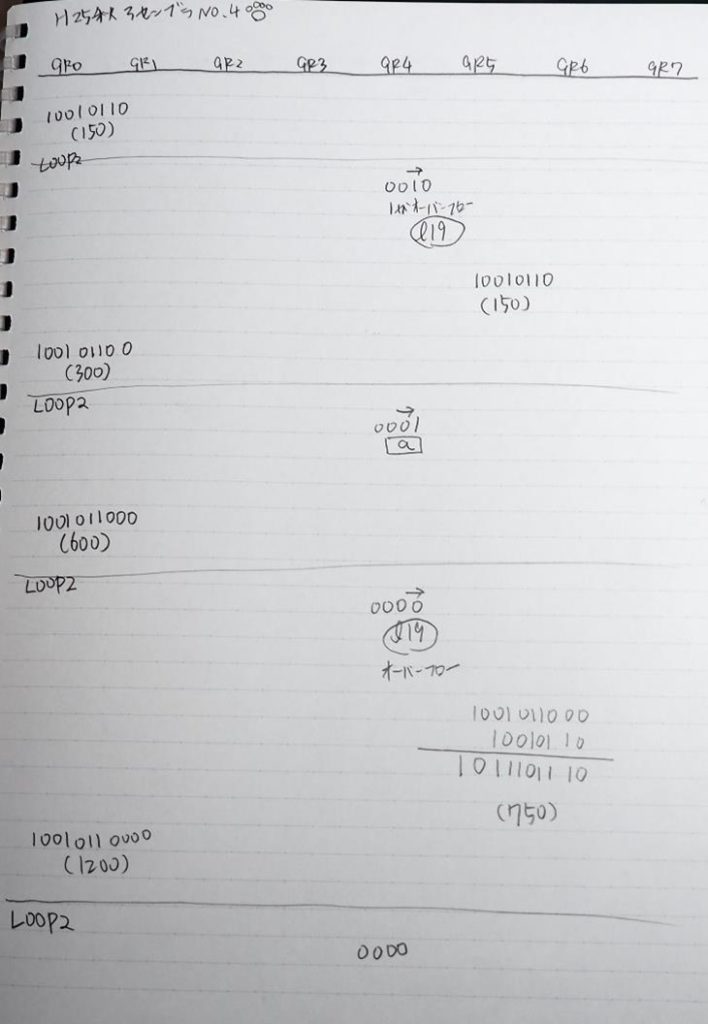 H25秋 アセンブラ NO.4
GR0 GR1 GR2 GR3 GR4 GR5 GR6 GR7
10010110
(150)
LOOP2
0010
1がオーバーフロー
l19
10010110
(150)
100101100
(300)
LOOP2
0001
a
1001011000
(600)
LOOP2
0000
l19
オーバーフロー
1001011000
10010110
1011101110
(750)
10010110000
(1200)
LOOP2
0000